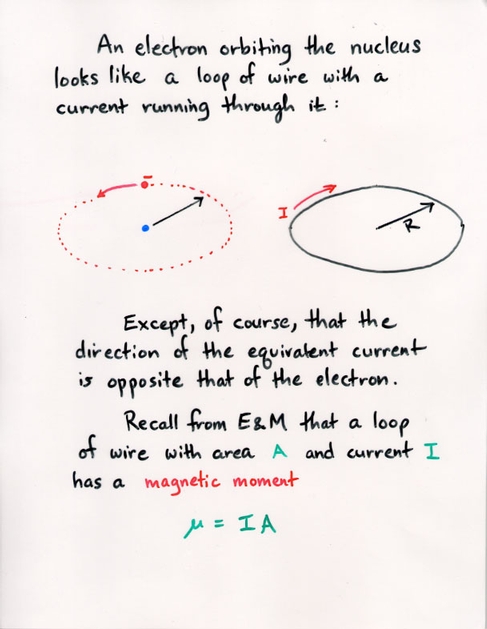 An electron orbiting the nucleus
looks like a loop of wire with a
current running through it:
-
I
R
Except, of course, that the
direction of the equivalent current
is opposite that of the electron.
Recall from E&M that a loop
of wire with area A and current I
has a magnetic moment
μ = IA